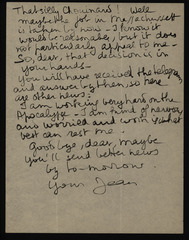 That silly Claimnaris! Well
maybe the job in Massachusett
is taken by now - I know it
would be reasonable, but it does
not particularly appeal to me -
So, dear, that decision is in
your hands -
You will have received the telegram
and answer by then, so here
are other news:
I am working very hard on the
Apocalypse - I am tired of nerves
and worried and work is what
best can rest me.
Goodbye, dear, maybe
you'll send better news
by to-morrow
Your Jean